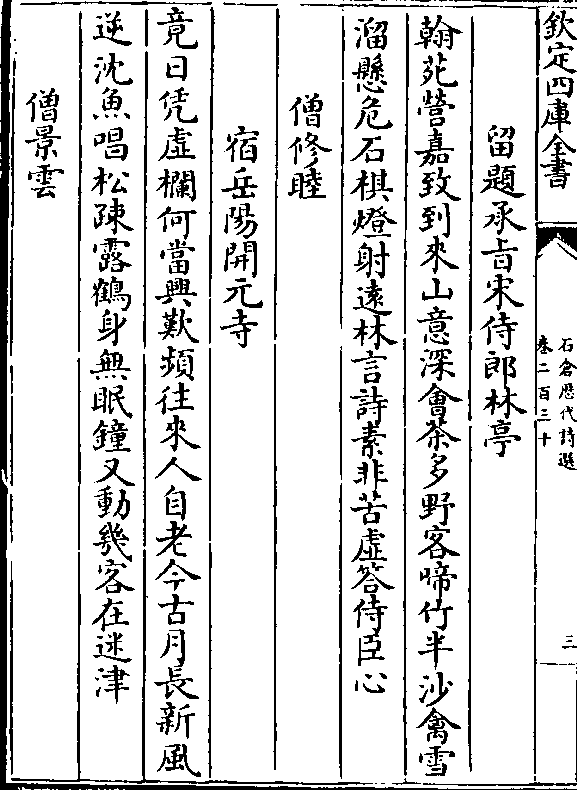 欽定四庫全書
石倉歷代詩選
卷二百三十
三
留題承旨宋侍郎林亭
翰苑營嘉致到來山意深會茶多野客啼竹半沙禽雪
溜懸危石棋燈射遠林言詩素非苦虛答侍臣心
僧修睦
宿岳陽開元寺
竟日凭虛欄何當興歎頻往來人自老今古月長新風
逆沈魚唱松疎露鶴身無眠鐘又動幾客在迷津
僧景雲